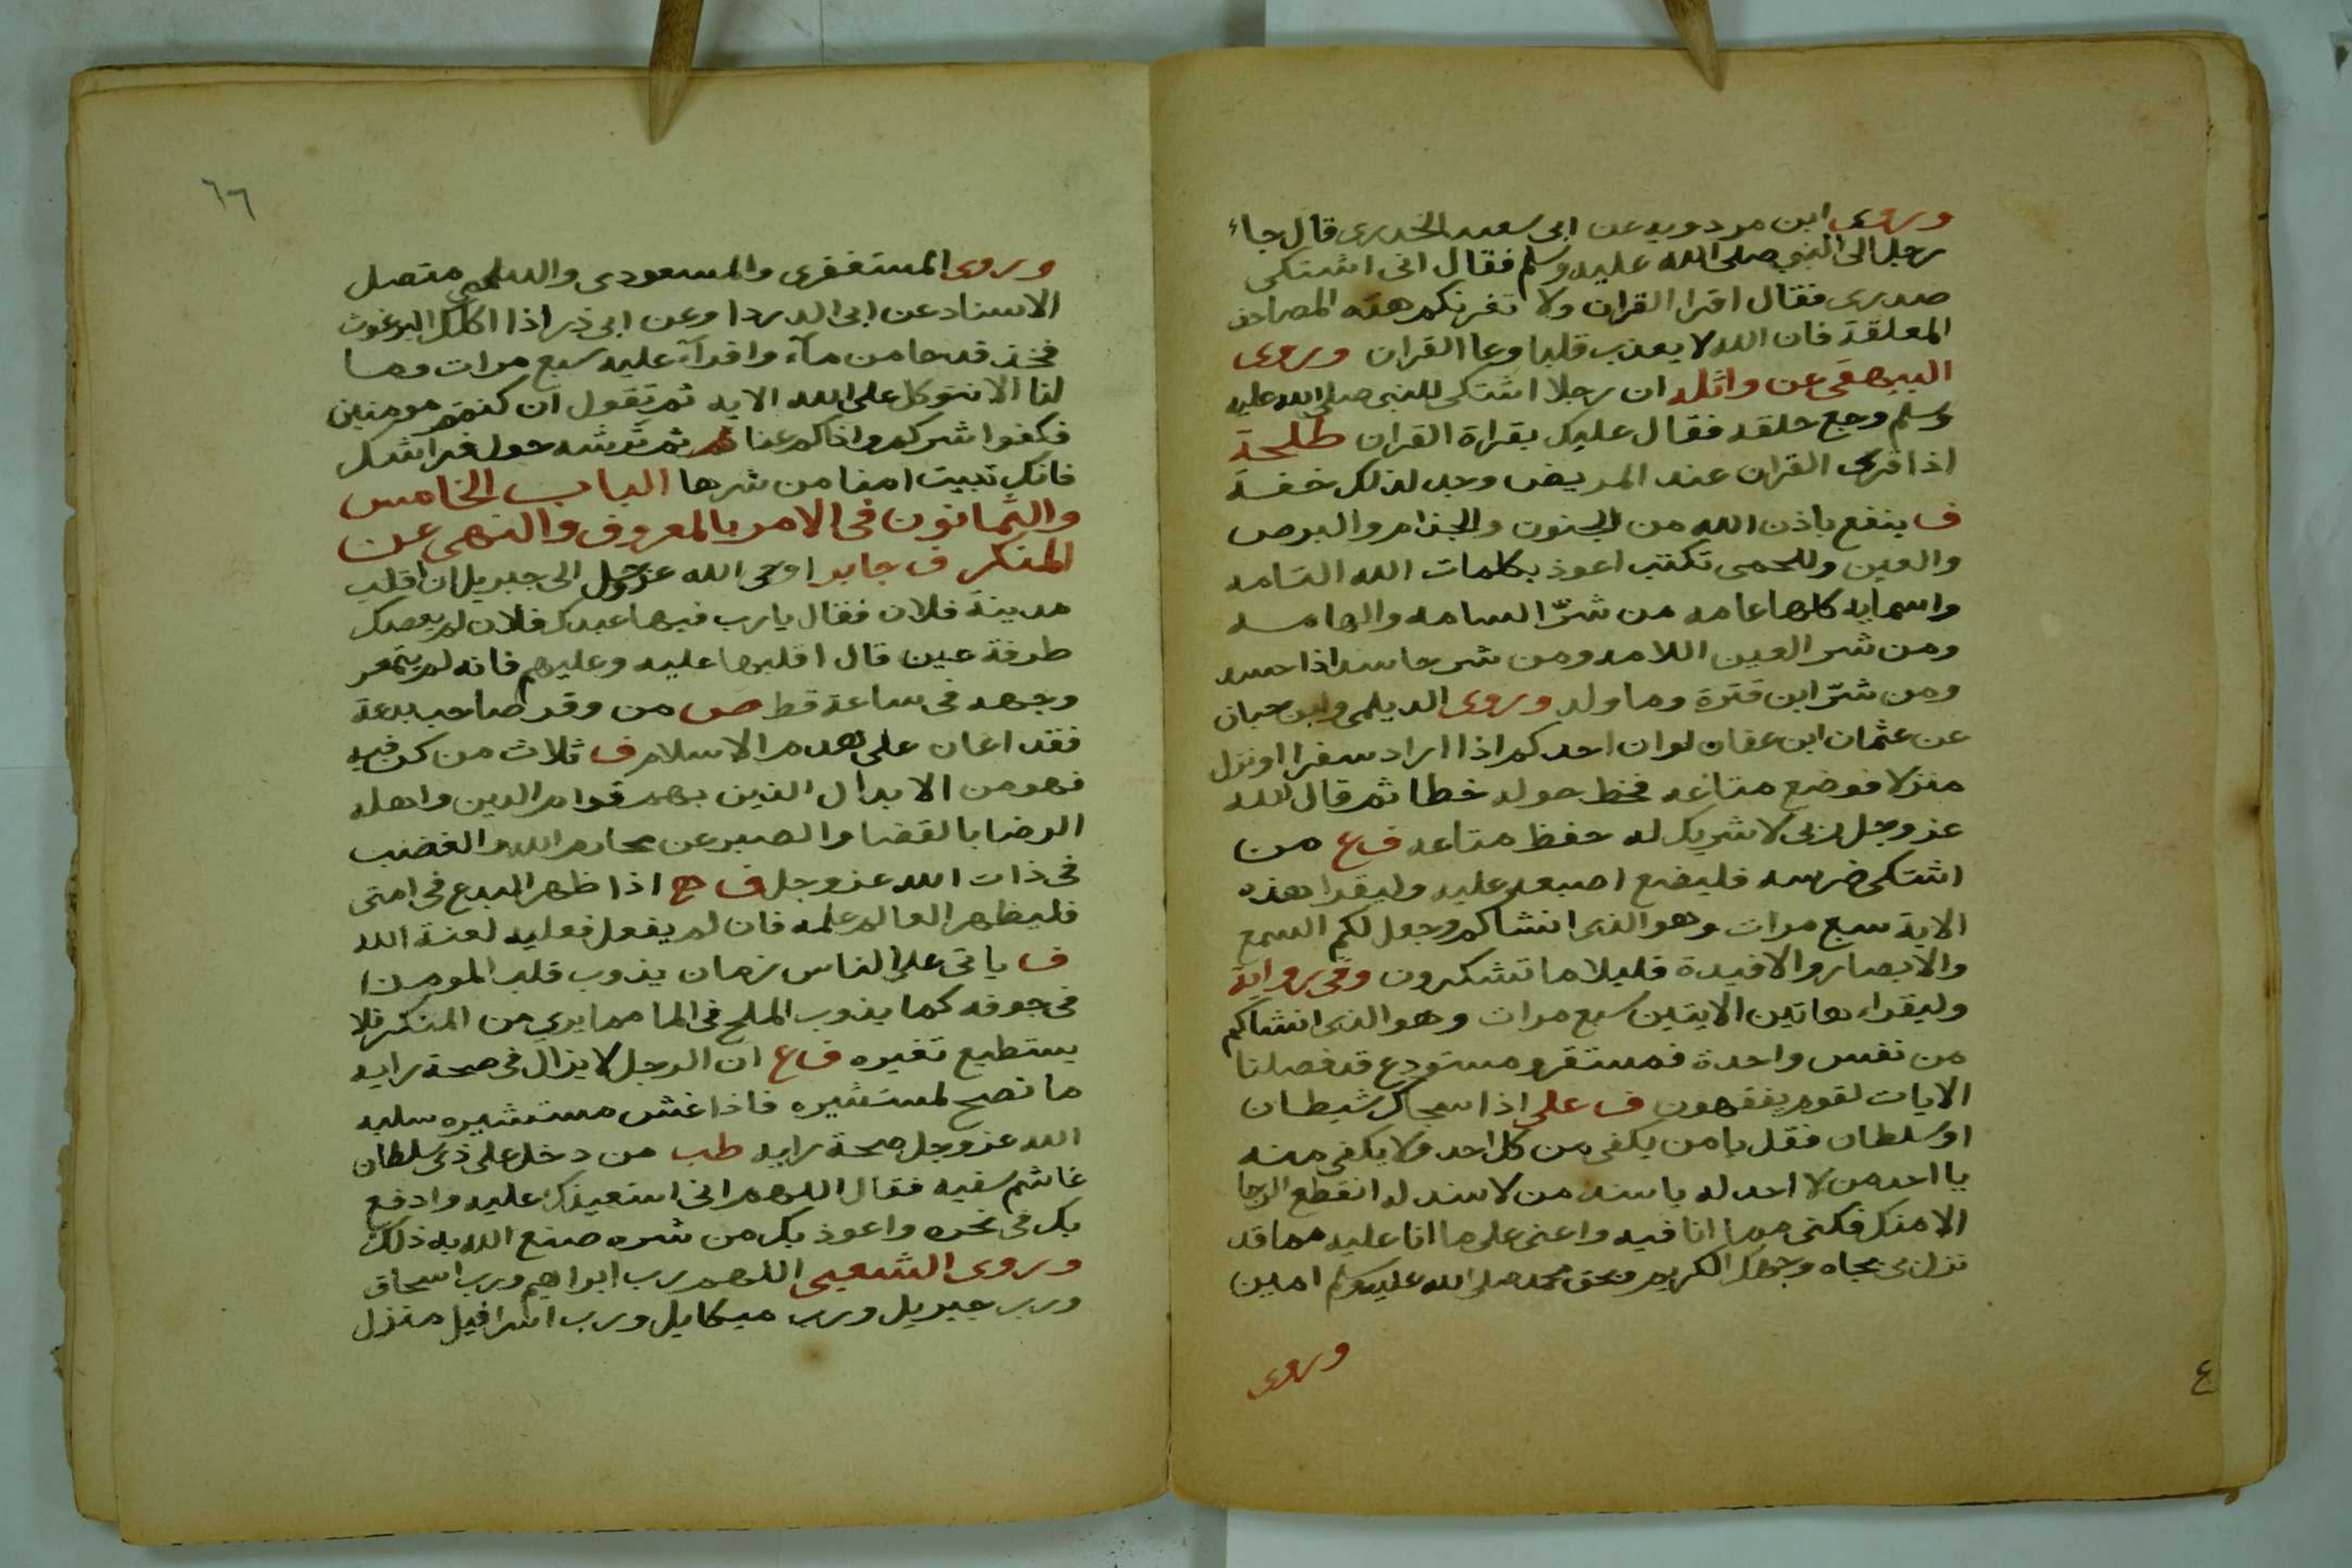 وروى ابن مردويه عن ابى سعيد الخدرى قال جاء
رجل الى النبى صلى الله عليه وسلم فقال انى اشتكى
صدرى فقال اقرا القران ولا تغرنكم هذه المصاحف
المعلقة فان الله لا يعذب قلبا وعا القران وروى
البيهقى عن واثله ان رجلا اشتكى للنبى صلى الله عليه
وسلم وجع حلقه فقال عليك بقراة القران طلحة
اذا قرى القران عند المريض وجد لذلك خفة
ف ينفع باذن الله من الجنون والجذام والبرص
والعين وللحمى تكتب اعوذ بكلمات الله التامه
واسمايه كلها عامه من شرّ السامه والهامه
ومن شر العين اللامه ومن شر حاسد اذا حسد
ومن شرّ ابن قترة وما ولد وروى الديلمى وابن حبان
عن عثمان ابن عفان لو ان احدكم اذا اراد سفرا او نزل
منزلا فوضع متاعه فخط حوله خطا ثم قال الله
عز وجل ربى لا شريك له حفظ متاعه ف ع من
اشتكى ضرسه فليضع اصبعه عليه وليقرا هذه
الاية سبع مرات وهو الذى انشاكم وجعل لكم السمع
والابصار والافيدة قليلا ما تشكرون وفى رواية
وليقراء هاتين الايتين سبع مرات وهو الذى انشاكم
من نفس واحدة فمستقر ومستودع قد فصلنا
الايات لقوم يفقهون ف على اذا شجاك شيطان
او سلطان فقل يا من يكفى من كل احد ولا يكفى منه
يا احد من لا احد له يا سند من لا سند له انقطع الرجا
الا منك فكنى مما انا فيه واعنى على ما انا عليه مما قد
نزل بى بجاه وجهك الكريم وبحق محمد صلى الله عليه وسلم امين
وروى
٤
٦٦
وروى المستغفرى والمسعودى والديلمى متصل
الاسناد عن ابى الدردا وعن ابى ذر اذا اكلك البرغوث
فخذ قدحا من مآء واقرآء عليه سبع مرات وما
لنا الا نتوكل على الله الايه ثم تقول ان كنتم مومنين
فكفوا شركم واذاكم عنا ثم ترشه حول فراشك
فانك تبيت امنا من شرها الباب الخامس
والثمانون فى الامر بالمعروف والنهى عن
المنكر ف جابر اوحى الله عز وجل الى جبريل ان اقلب
مدينة فلان فقال يارب فيها عبدك فلان لم يعصك
طرفة عين قال اقلبها عليه وعليهم فانه لم يتمعر
وجهه فى ساعة قط ص من وقر صاحب بدعة
فقد اعان على هدم الاسلام ف ثلاث من كن فيه
فهو من الابدال الذين بهم قوام الدين واهله
الرضا بالقضا والصبر عن محارم الله والغضب
فى ذات الله عز وجل ف ح اذا ظهر البدع فى امتى
فليظهر العالم علمه فان لم يفعل فعليه لعنة الله
ف ياتى على الناس زمان يذوب قلب المومن
فى جوفه كما يذوب الملح فى الما مما يري من المنكر فلا
يستطيع تغيره ف ع ان الرجل لا يزال فى صحة رايه
ما نصح لمستشيره فاذا غش مستشيره سلبه
الله عز وجل صحة رايه طب من دخل على ذى سلطان
غاشم سفيه فقال اللهم انى استعينك عليه وادفع
بك فى نحره واعوذ بك من شره صنع الله به ذلك
وروى الشعبى اللهم رب ابراهيم ورب اسحاق
ورب جبريل ورب ميكايل ورب اسرافيل منزل